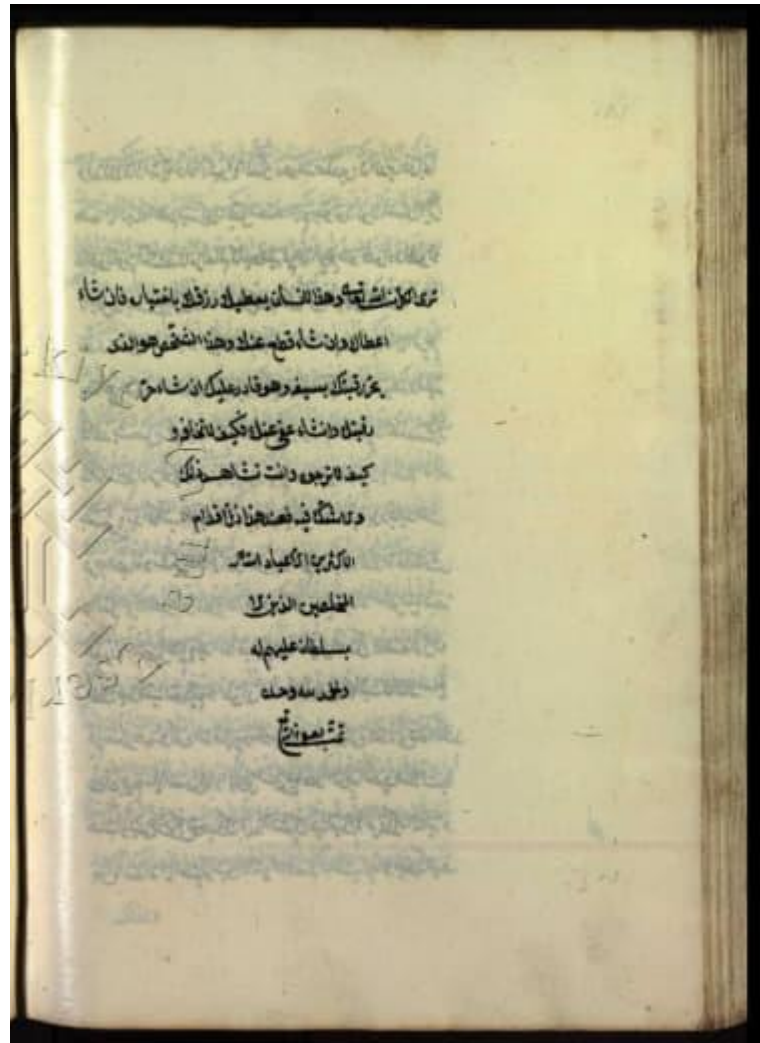 ترى الكل من الله تعالى وهذا الانسان يعطيك رزقك باختياره فان شاء
اعطاك وان شاء قطع عنك وهذا الشخص هو الذى
يحز رقبتك بسيفه وهو قادر عليك ان شاء حز
رقبتك وان شاء عفى عنك فكيف لا تخافه و
كيف لا ترجوه وانت تشاهد ذلك
ولا تشك فيه فعند هذا زل اقدام
الاكثرين الا عباد الله
المخلصين الذين لا
سلطان عليهم له
والحمد لله وحده
تمت بعون